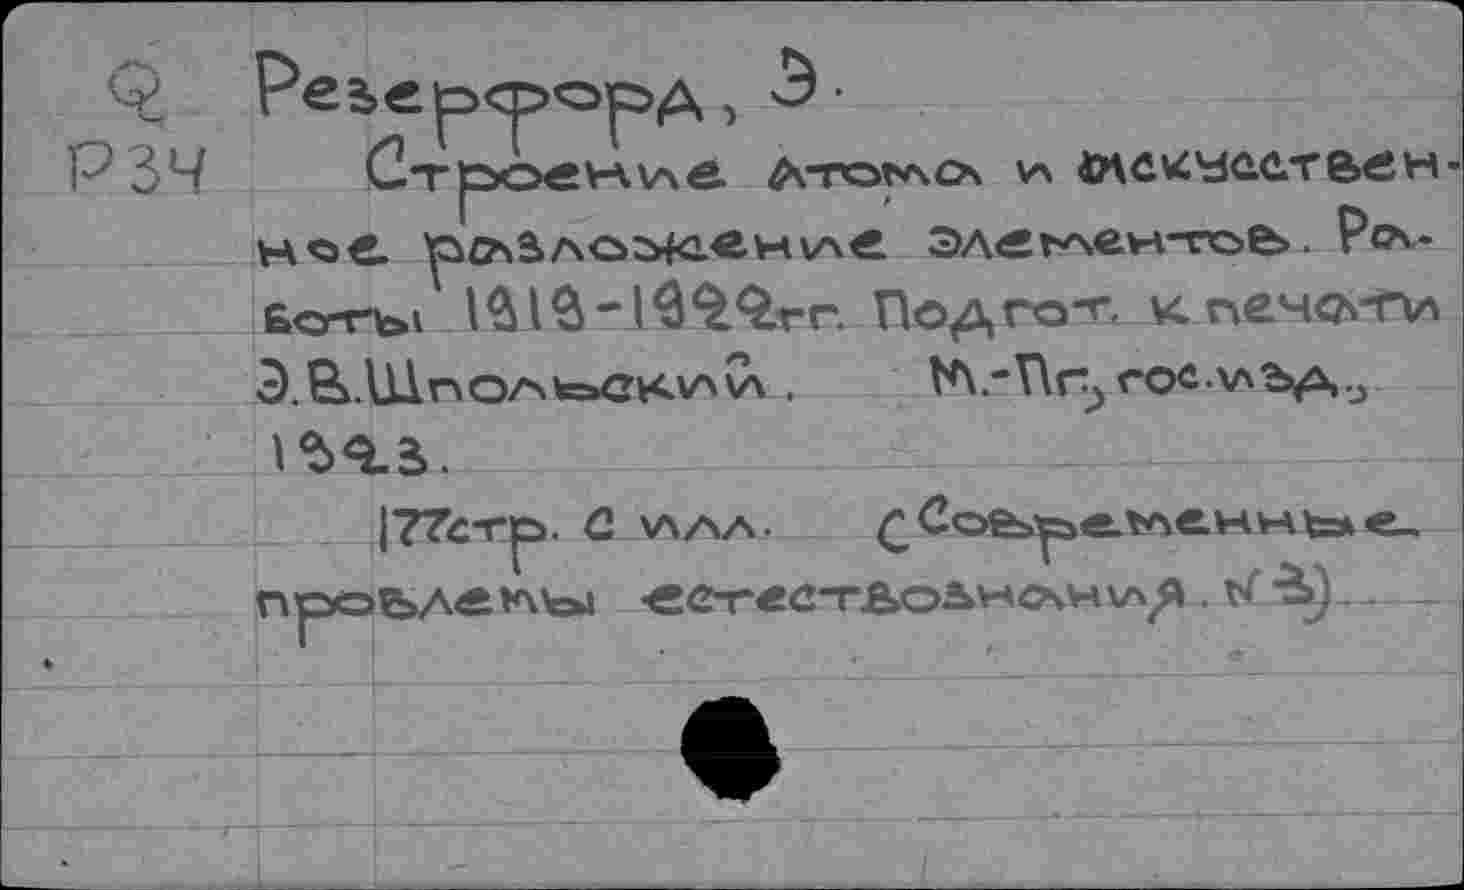 Q Резерфорд, Э.
P34 Строение атома и искусствен-
ное разложение элементов. Ра-
боты 1919-1922гг. Подгот. к печати
Э.В.Шпольский. М.-Пг, гос.изд.,
1923.
177стр. с илл. (Современные
проблемы естествознания. №3)